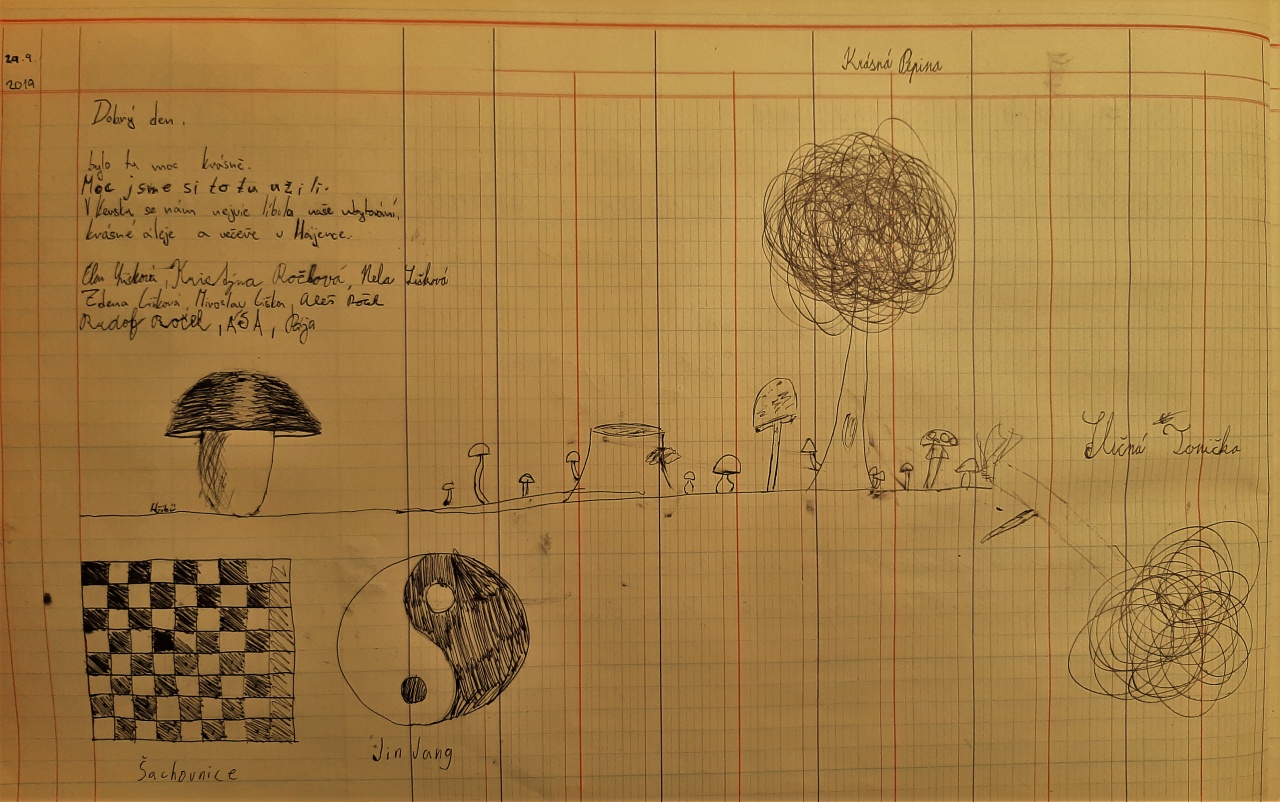 29.9.
2019
Krásná Pepina
Dobrý den.
bylo tu moc krásně.
Moc jsme si to tu užili.
V Kersku se nám nejvíc líbilo naše ubytování,
krásné aleje a večeře v Hájence.
Kristýna Ročková, Nela Lišková
Zdena Lišková, Miroslav Liška, Aleš Roček
Rudolf Roček, AŠA, Pája
Sličná Tonička
Šachovnice
Jin Jang